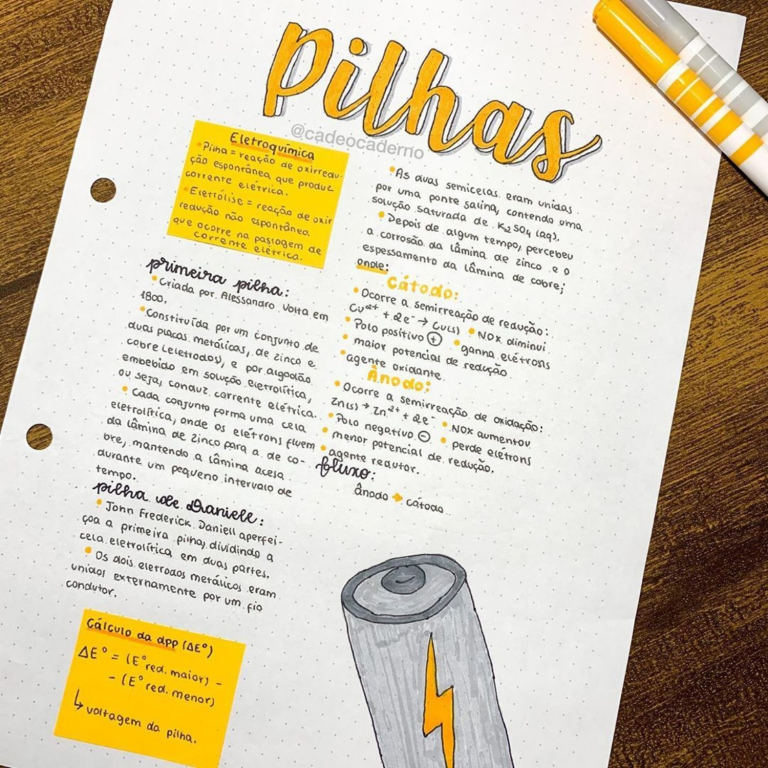 Pilhas
@cadeocaderno
Eletroquímica
• Pilha = reação de oxirredu-
ção espontânea que produz
corrente elétrica.
• Eletrólise = reação de oxir
redução não espontânea
que ocorre na passagem de
corrente elétrica.
primeira pilha:
• Criada por Alessandro Volta em
1800.
• Constituída por um conjunto de
duas placas metálicas, de zinco e
cobre (eletrodos), e por algodão
embebido em solução eletrolítica,
ou seja, conduz corrente elétrica.
• Cada conjunto forma uma cela
eletrolítica, onde os elétrons fluem
da lâmina de zinco para a de co-
bre, mantendo a lâmina acesa
durante um pequeno intervalo de
tempo.
pilha de Daniell:
• John Frederick Daniell aperfei-
çoa a primeira pilha, dividindo a
cela eletrolítica em duas partes.
• Os dois eletrodos metálicos eram
unidos externamente por um fio
condutor.
Cálculo da dpp (ΔE°)
ΔE° = (E° red. maior) -
- (E° red. menor)
↳ voltagem da pilha.
• As duas semicelas eram unidas
por uma ponte salina, contendo uma
solução saturada de K₂SO₄ (aq).
• Depois de algum tempo, percebeu
a corrosão da lâmina de zinco e o
espessamento da lâmina de cobre;
onde:
Cátodo:
• Ocorre a semirreação de redução:
Cu²⁺ + 2e⁻ → Cu(s) • NOX diminui
• Polo positivo ⊕ • ganha elétrons
• maior potencial de redução
• agente oxidante.
Ânodo:
• Ocorre a semirreação de oxidação:
Zn(s) → Zn²⁺ + 2e⁻ • NOX aumentou
• Polo negativo ⊖ • perde elétrons
• menor potencial de redução.
• agente redutor.
fluxo:
ânodo → cátodo